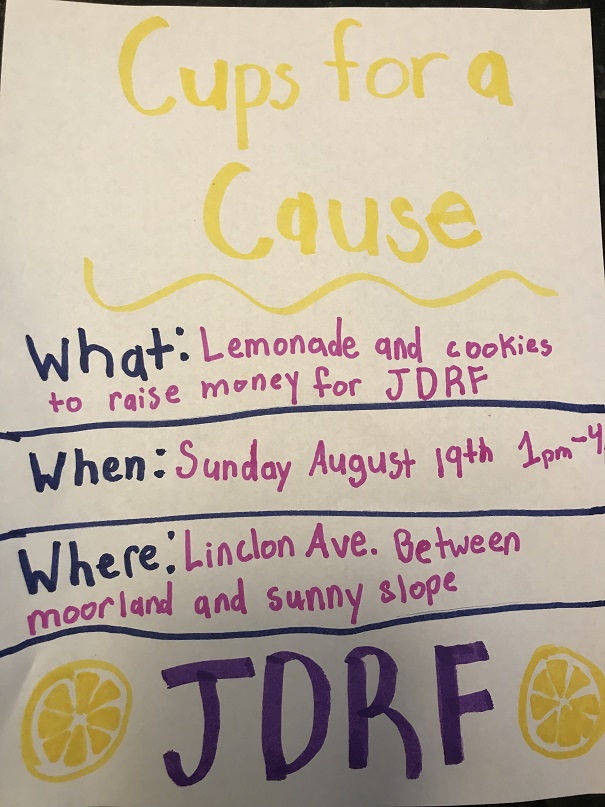 Cups for a
Cause
What: Lemonade and cookies
to raise money for JDRF
When: Sunday August 19th 1pm-4
Where: Linclon Ave. Between
moorland and sunny slope
JDRF